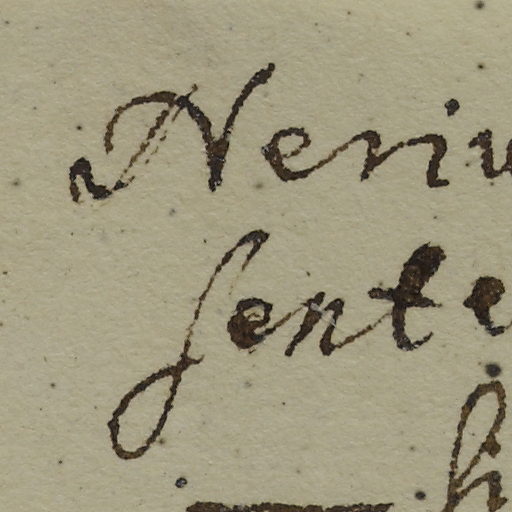 Neriu
sente
h